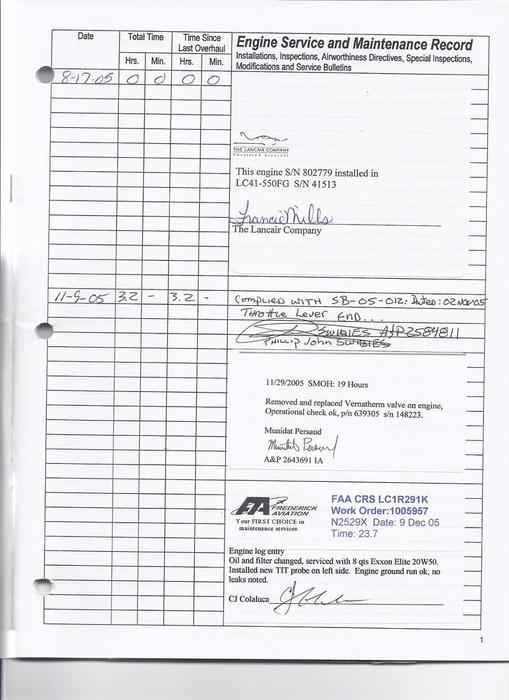 Date
Total Time
Time Since
Last Overhaul
Hrs. Min. Hrs. Min.
Engine Service and Maintenance Record
Installations, Inspections, Airworthiness Directives, Special Inspections,
Modifications and Service Bulletins
8-17-05 0 0 0 0
THE LANCAIR COMPANY
Certified Aircraft
This engine S/N 802779 installed in
LC41-550FG S/N 41513
Francie Mills
The Lancair Company
11-9-05 3.2 - 3.2 - Complied with SB-05-012: Dated: 02 Nov 05
Throttle Lever End...
Swibies A&P 2584811
Phillip John Swibies
11/29/2005 SMOH: 19 Hours
Removed and replaced Vernatherm valve on engine,
Operational check ok, p/n 639305 s/n 148223.
Munidat Persaud
Munidat Persaud
A&P 2643691 IA
FA FREDERICK
AVIATION
Your FIRST CHOICE in
maintenance services
FAA CRS LC1R291K
Work Order:1005957
N2529X Date: 9 Dec 05
Time: 23.7
Engine log entry
Oil and filter changed, serviced with 8 qts Exxon Elite 20W50.
Installed new TIT probe on left side. Engine ground run ok, no
leaks noted.
CJ Colaluca
1